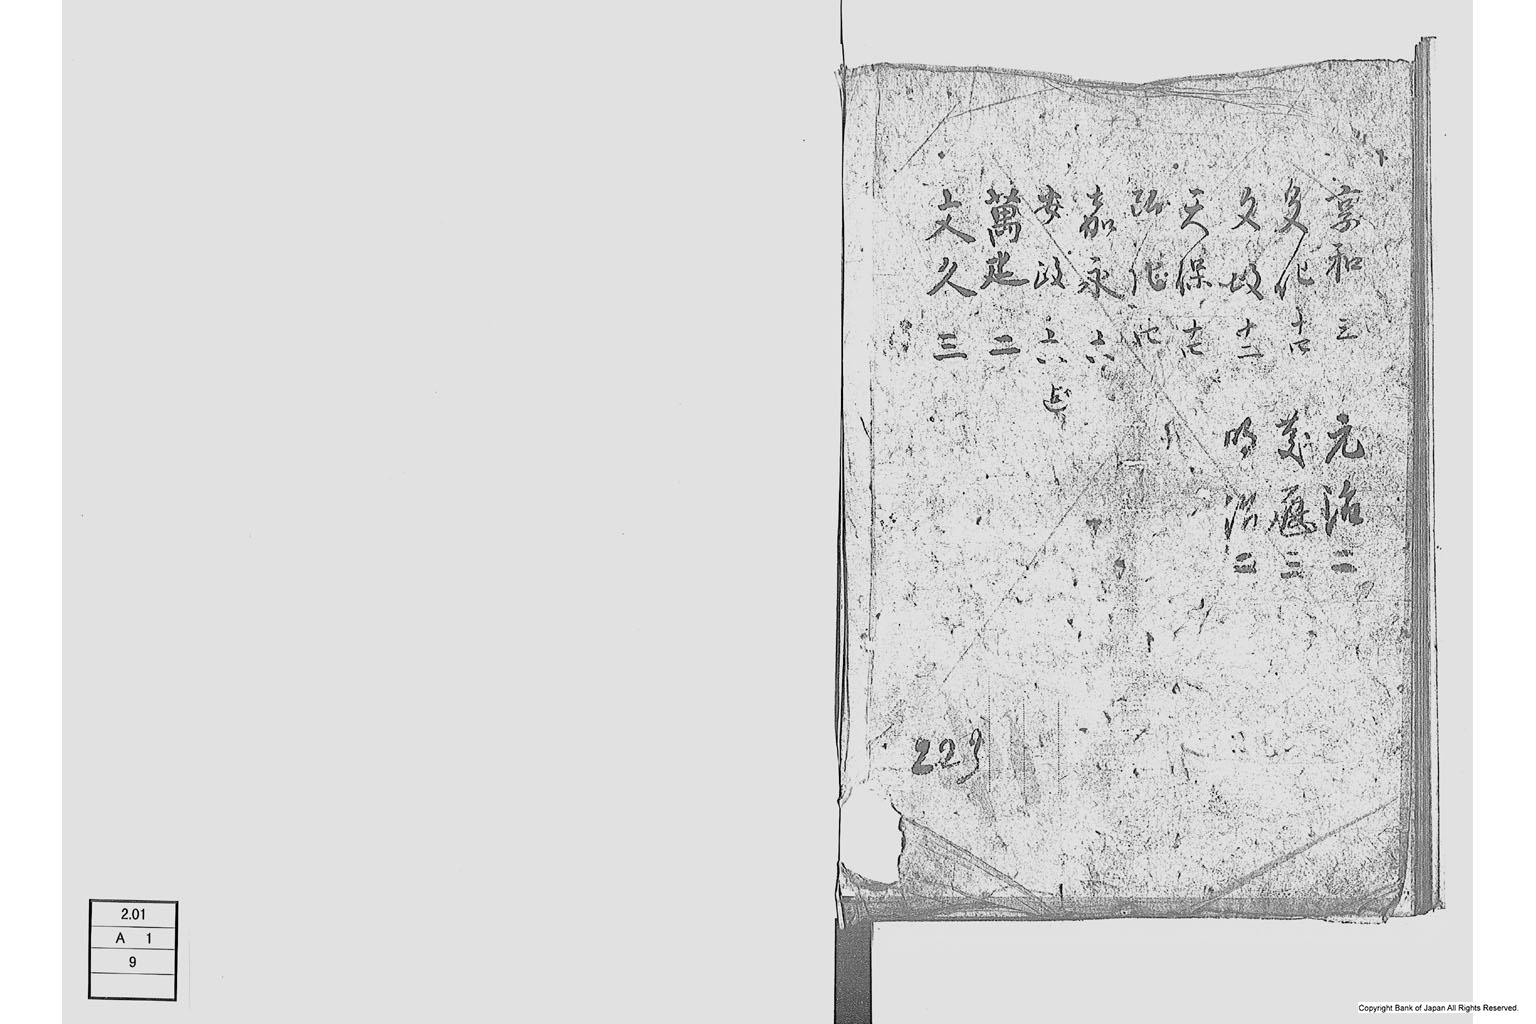 享和 三
文化 十四
文政 十二
天保 十四
弘化 四
嘉永 六
安政 六
迄
萬延 二
文久 三
元治 二
慶應 三
明治 二
229
2.01
A 1
9
Copyright Bank of Japan All Rights Reserved.